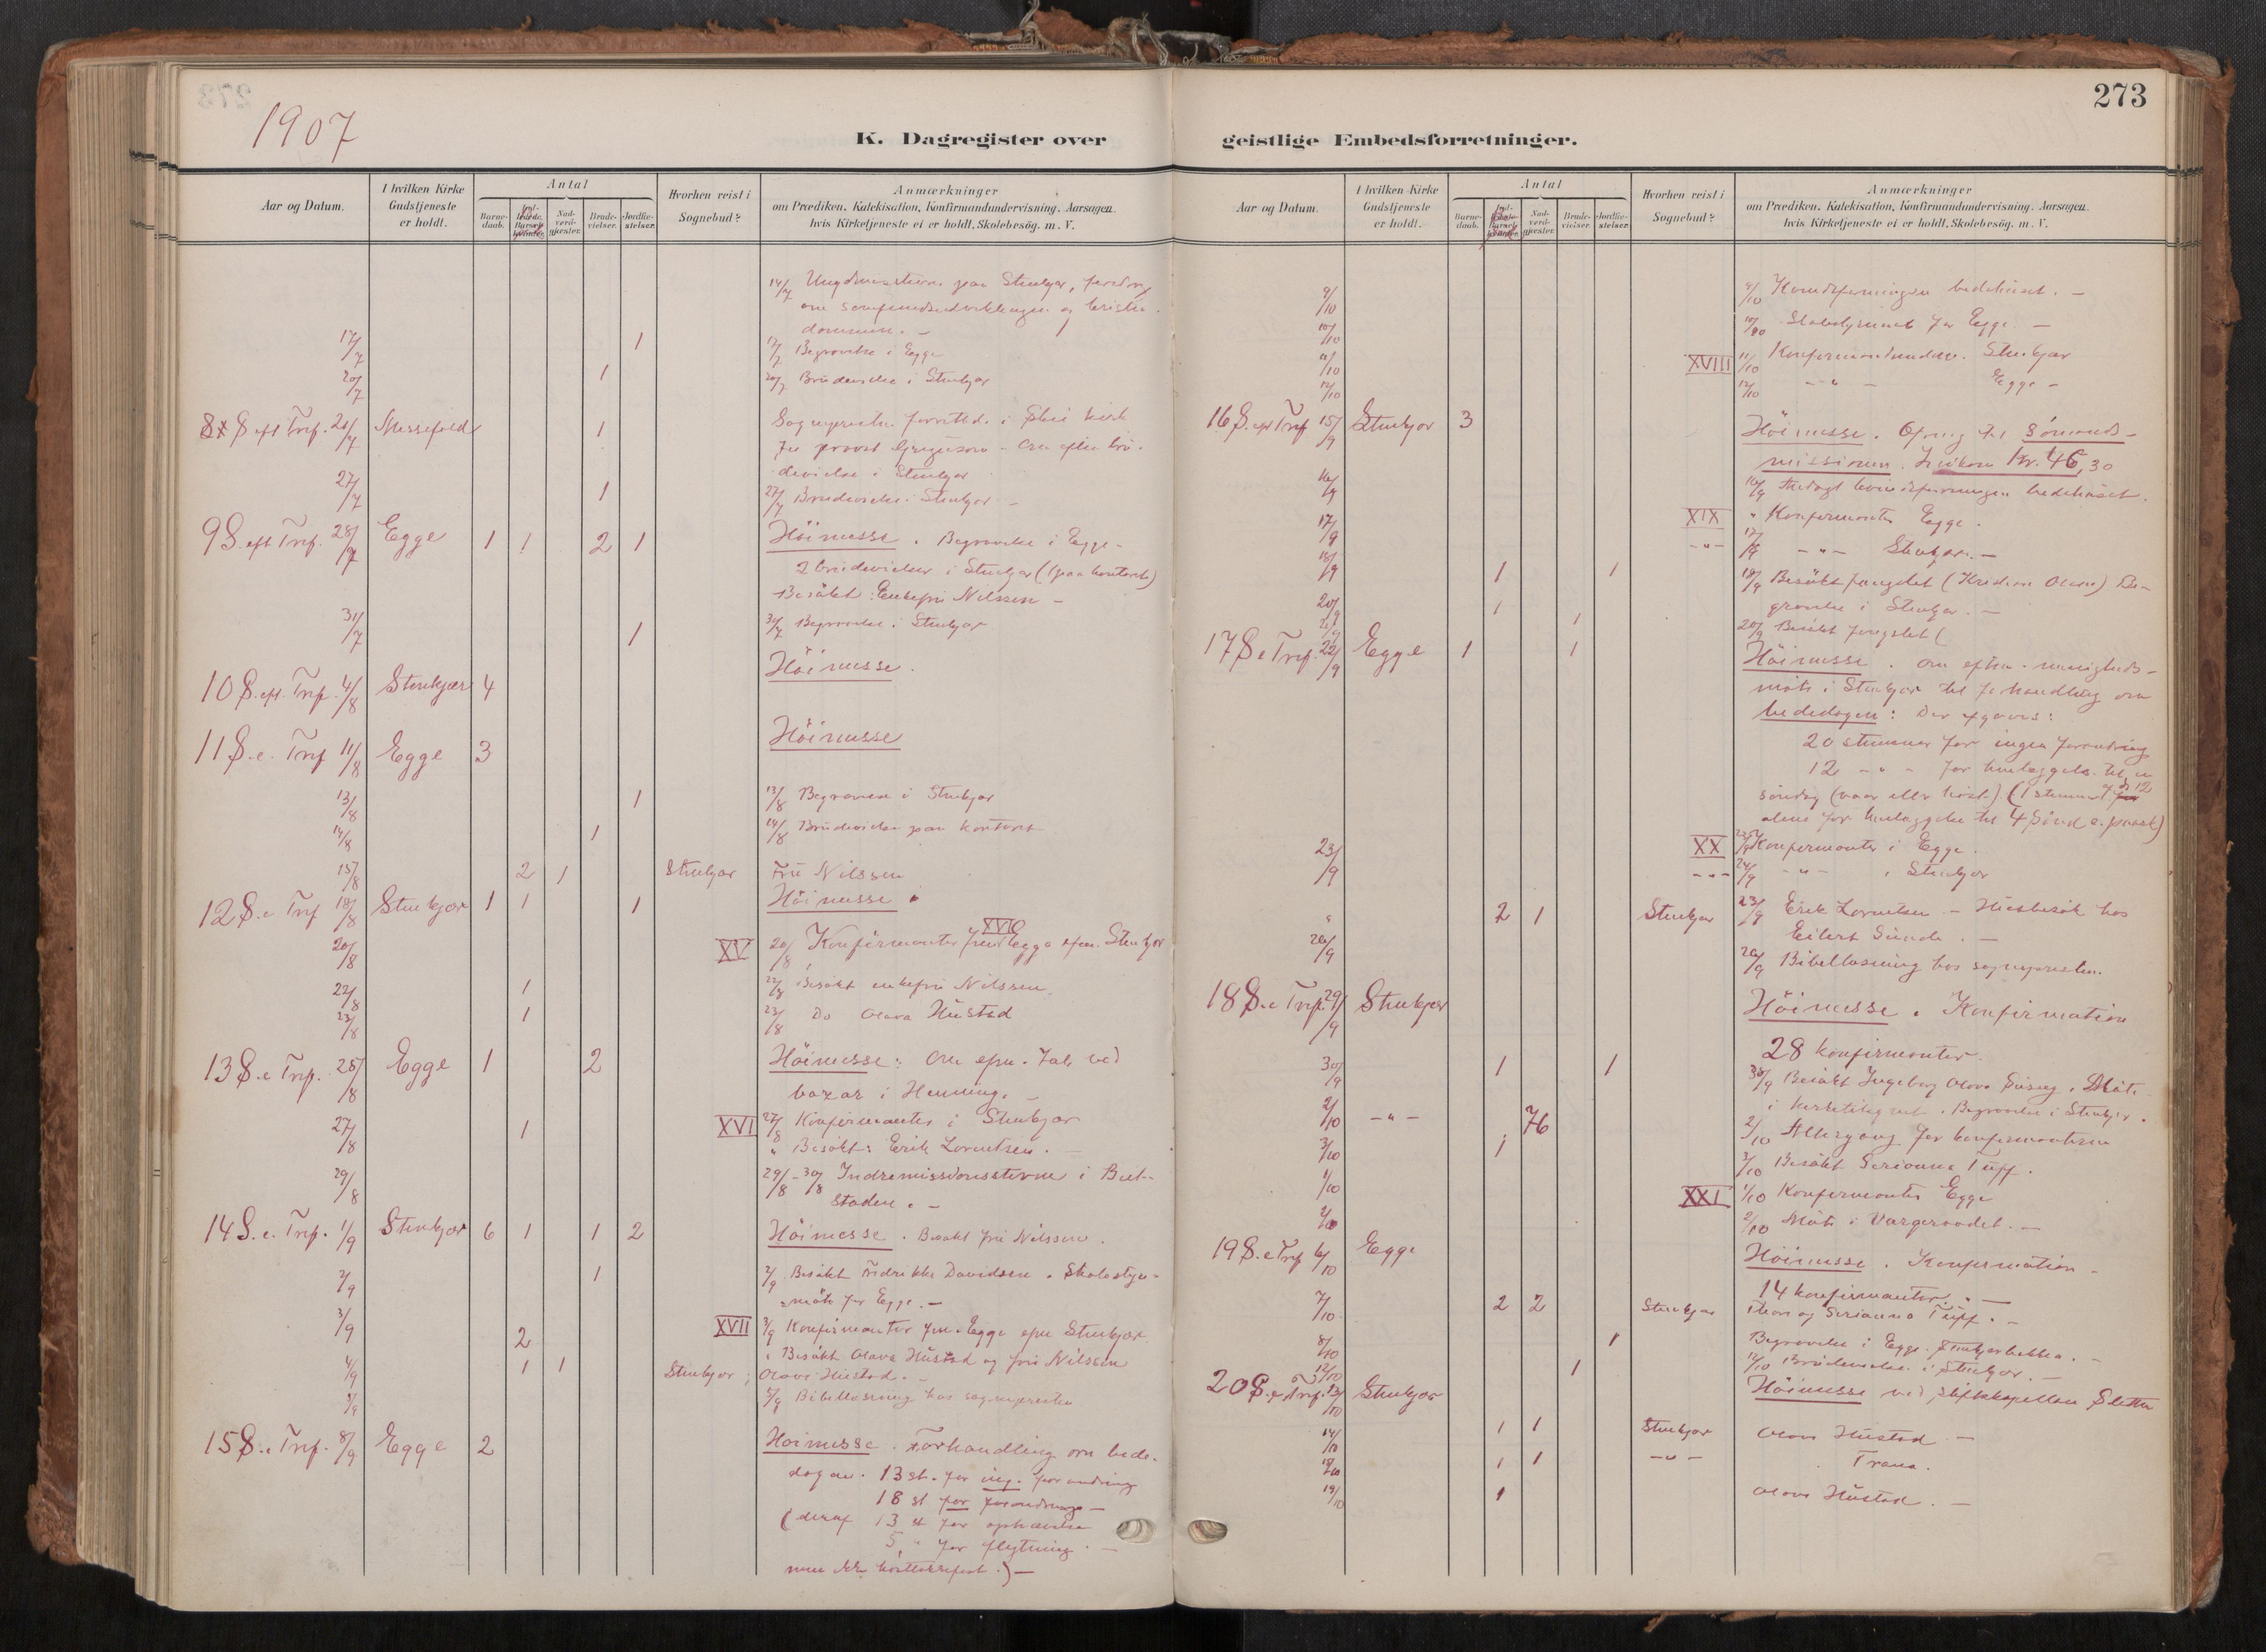 1907
273
K. Dagregister over geistlige Embedsforretninger.
Aar og Datum.
I hvilken Kirke Gudstjeneste er holdt.
Antal
Barne-daab.
Nad-verd-gjester.
Brude-vielser.
Jordfæ-stelser.
Hvorhen reist i Sognebud?
Anmærkninger
om Prædiken, Katekisation, Konfirmandundervisning. Aarsagen,
hvis Kirketjeneste ei er holdt, Skolebesög. m. V.
14/7 Ungdomsstevne paa Stenkjær, foredrag
om samfundsudviklingen og kristen-
dommen. —
17/7 1 17/7 Begravelse i Egge
20/7 1 20/7 Brudevielse i Stenkjær
8 S eft Tref. 21/7 Messefald 1 Sognepresten forrettede i
provst
devielse i Stenkjær
27/7 1 27/7 Brudevielse i Stenkjær —
9 S. eft Tref. 28/7 Egge 1 1 2 1 Höimesse. Begravelse i Egge —
2 brudevielser i Stenkjær (1 paa kontoret)
Besökt: Enkefru Nilssen —
31/7 1 31/7 Begravelse i Stenkjær
10 S. eft. Tref. 4/8 Stenkjær 4 Höimesse.
11 S. e. Tref 11/8 Egge 3 Höimesse
13/8 1 13/8 Begravelse i Stenkjær
14/8 1 14/8 Brudevielse paa kontoret
15/8 2 1 Stenkjær Fru Nilssen
12 S. e Tref 18/8 Stenkjær 1 1 1 Höimesse.
20/8 XV 20/8 Konfirmanter fm XVI Egge efm. Stenkjær
22/8 1 22/8 Besökt enkefru Nilssen
23/8 1 23/8 Do Olava Hustad
13 S. e Tref. 25/8 Egge 1 2 Höimesse: Om efm. Tale ved
bazar i Henning. —
27/8 1 XVI 27/8 Konfirmanter i Stenkjær
" Besökt: Erik Lorentsen. —
29/8 29/8 - 30/8 Indremissionsstevne i Beit-
staden. —
14 S. e. Tref. 1/9 Stenkjær 6 1 1 2 Höimesse. Besökt fru Nilssen.
2/9 1 2/9 Besökt Fredrikke Davidsen. Skolestyre-
möte for Egge. —
3/9 2 XVII 3/9 Konfirmanter fm. Egge efm Stenkjær
" Besökt Olava Hustad og fru Nilssen
4/9 1 1 Stenkjær; Olava Hustad. —
5/9 5/9 Bibellæsning hos sognepresten
15 S. e Tref. 8/9 Egge 2 Höimesse. Forhandling om bede-
dagen. 13 st. for ing. forandring
18 st for forandring —
(deraf 13 st for ophævelse
5 " for flytning. —
Aar og Datum.
I hvilken Kirke Gudstjeneste er holdt.
Antal
Barne-daab.
Nad-verd-gjester.
Brude-vielser.
Jordfæ-stelser.
Hvorhen reist i Sognebud?
Anmærkninger
om Prædiken, Katekisation, Konfirmandundervisning. Aarsagen,
hvis Kirketjeneste ei er holdt, Skolebesög. m. V.
9/10 9/10 Kvindeforeningen bedehuset. —
10/10 10/10 for Egge —
11/10 XVIII 11/10 Konfirmandunderv. Stenkjær
12/10 12/10 — " — Egge —
16 S. eft Tref 15/9 Stenkjær 3 Höimesse. Ofring til Sömands-
missionen. Indkom Kr. 46,30
16/9 16/9 kvindeforeningen bedehuset.
XIX " Konfirmanter Egge.
17/9 — " — 17/9 — " — Stenkjær. —
18/9 1 1 18/9 Besökt fængslet (Kredian Olsen) Be-
gravelse i Stenkjær. —
20/9 1 20/9 Besökt fængslet (
21/9 1
17 S e Tref. 22/9 Egge 1 1 Höimesse. om efterm. menigheds-
möte i Stenkjær til forhandling om
bededagen: Der afgaves:
20 stemmer for ingen forandring
12 — " — for henlæggelse til en
söndag (vaar eller höst) (1 stemme af de 12
alene for henlæggelse til 4 sönd e. paask)
23/9 XX 23/9 Konfirmanter i Egge.
— " — 24/9 — " — i Stenkjær
" 2 1 Stenkjær 23/9 Erik Lorentsen — Husbesök hos
Eilert Sunde. —
26/9 26/9 Bibellæsning hos sognepresten.
18 S. e Tref. 29/9 Stenkjær Höimesse. Konfirmation
28 konfirmanter.
30/9 1 1 30/9 Besökt Ingeborg Olava . Möte
i . Begravelse i Stenkjær.
2/10 — " — 76 2/10 Altergang for konfirmanterne
3/10 1 3/10 Besökt Serianna Tuff.
1/10 XXI 1/10 Konfirmanter Egge
2/10 2/10 Möte i Værgeraadet. —
19 S. e Tref 6/10 Egge Höimesse. Konfirmation —
14 konfirmanter. —
7/10 2 2 Stenkjær og Serianna Tuff. —
8/10 1 Begravelse i Egge. —
12/10 1 12/10 Brudevielse i Stenkjær. —
20 S. e Tref. 13/10 Stenkjær Höimesse ved stiftskapellan Sletten
14/10 1 1 Stenkjær Olava Hustad —
1 1 — " — Trana.
19/10 1 Olava Hustad. —